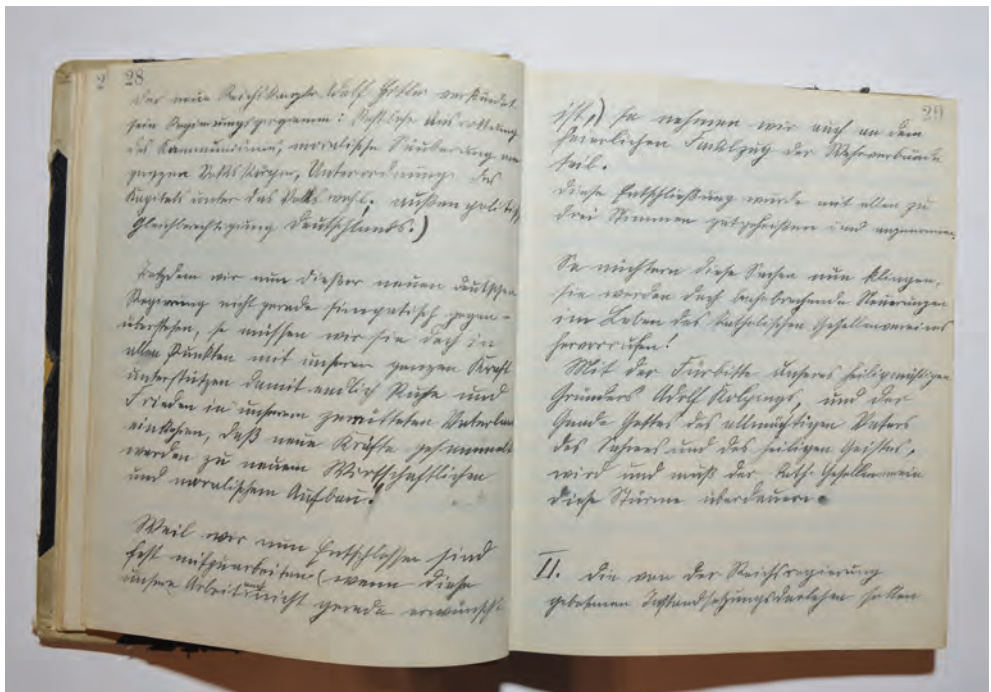 2
28
Der neue Reichskanzler Adolf Hitler verkündet
sein Regierungsprogramm: Restlose Ausrottung
des Kommunismus, moralische Säuberung am
ganzen Volkskörper, Unterordnung des
Kapitals unter das Volkswohl, außenpolitisch,
Gleichberechtigung Deutschlands.)
Trotzdem wir nun dießer neuen deutschen
Regierung nicht gerade simpatisch gegen-
überstehen, so müssen wir sie doch in
allen Punkten mit unserer ganzen Kraft
unterstützen damit endlich Ruhe und
Frieden in unserem zerrütteten Vaterland
einkehren, daß neue Kräfte gesammelt
werden zu neuem Wirtschaftlichen
und moralischem Aufbau.
Weil wir nun Entschlossen sind
fest mitzuarbeiten (wenn diese
unsere Arbeit auch nicht gerade erwünscht
29
ist,) so nehmen wir auch an dem
feierlichen Facklzug der Wehrverbände
teil.
Diese Entschließung wurde mit allen zu
drei Stimmen gutgeheißen und angenommen.
So nüchtern diese Sachen nun klingen,
sie werden doch bahnbrechende Neuerungen
im Leben des katholischen Gesellenvereins
hervorrufen!
Mit der Fürbitte unseres heiligmäßigen
Gründers Adolf Kolpings, und der
Gnade Gottes des allmächtigen Vaters
des Sohnes und des heiligen Geistes,
wird und muß der kath. Gesellenverein
diese Stürme überdauern.
II. Die von der Reichsregierung
gebotenen Instandsetzungsdarlehen sollen